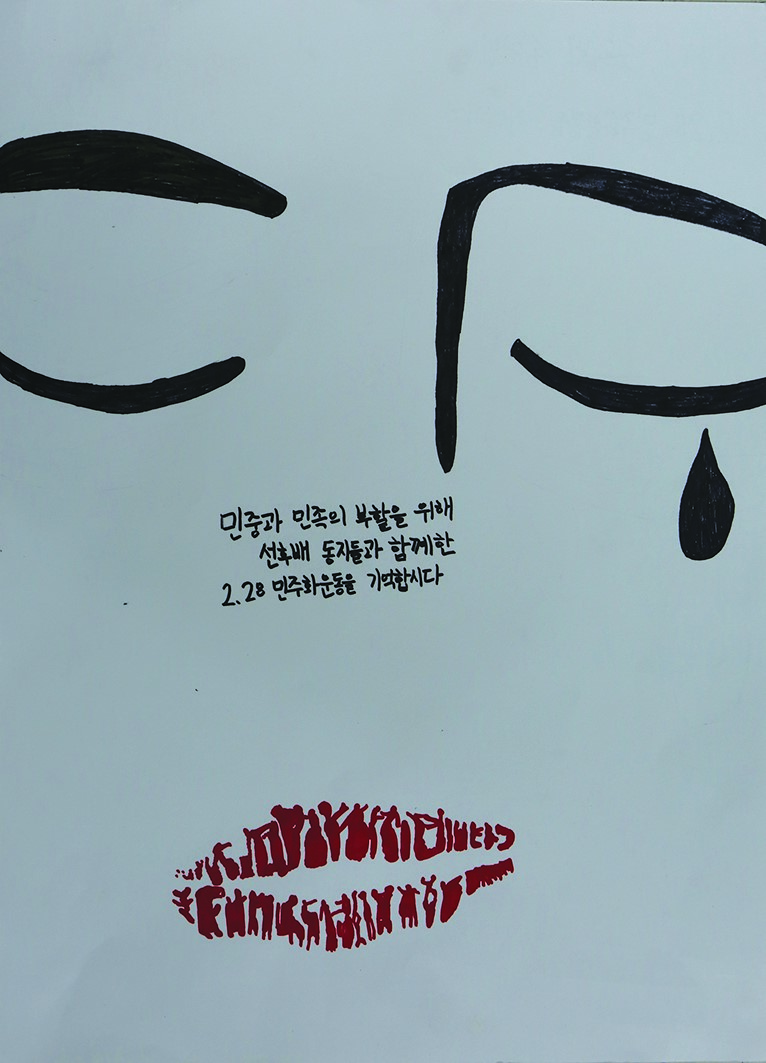 민중과 민족의 부활을 위해
선후배 동지들과 함께한
2.28 민주화운동을 기억합시다